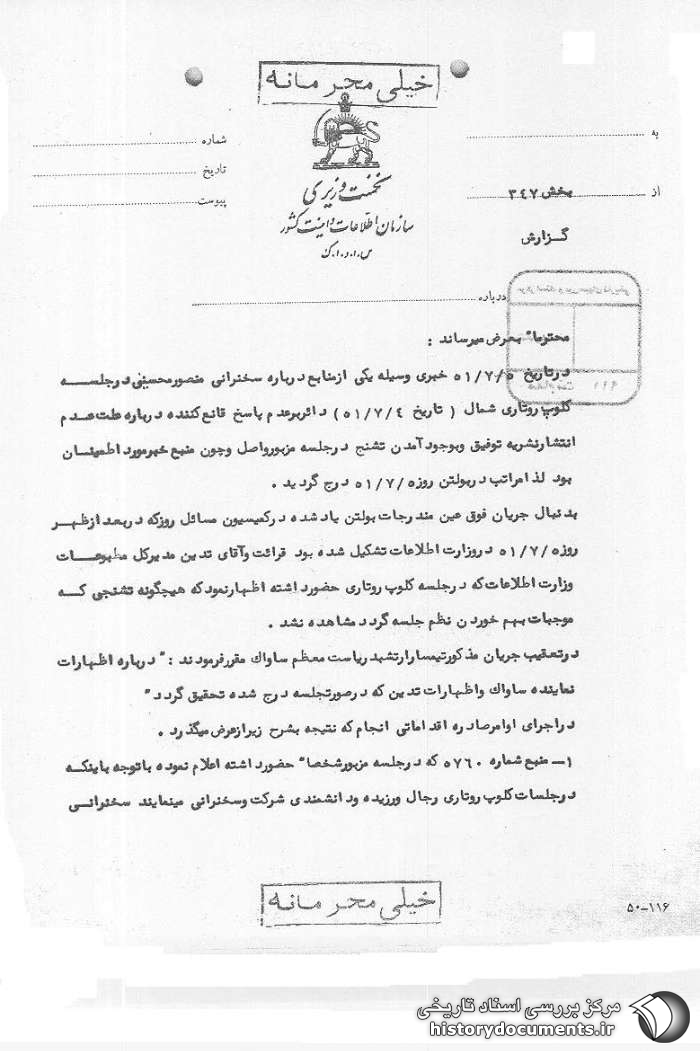 خیلی محرمانه
به
شماره
نخست وزیری
تاریخ
از بخش ۳۴۷
سازمان اطلاعات و امنیت کشور
پیوست
س.ا.و.ا.ک
گزارش
درباره
محترما" بعرض میرساند :
درتاریخ ۵۱/۷/۵ خبری وسیله یکی ازمنابع درباره سخنرانی منصورمحسینی درجلســه
کلوپ روتاری شمال ( تاریخ ۵۱/۷/۴ ) دائربرعدم پاسخ قانع کننده درباره علت عـدم
انتشارنشریه توفیق وبوجودآمدن تشنج درجلسه مزبورواصل وچون منبع خبرمورد اطمینـان
بود لذا مراتب دربولتن روز ۵۱/۷/۵ درج گردید .
بدنبال جریان فوق عین مندرجات بولتن یاد شده درکمیسیون مسائل روزکه دربعد ازظهـر
روز ۵۱/۷/۵ دروزارت اطلاعات تشکیل شده بود قرائت وآقای تدین مدیرکل مطبوعــات
وزارت اطلاعات که درجلسه کلوپ روتاری حضورداشته اظهارنمودکه هیچگونه تشنجی کــه
موجبات بهم خوردن نظم جلسه گردد مشاهده نشد .
درتعقیب جریان مذکورتیمسارارتشبد ریاست معظم ساواك مقررفرمودند : " درباره اظهارات
نماینده ساواك واظهارات تدین که درصورتجلسه درج شده تحقیق گردد "
دراجرای اوامرصادره اقداماتی انجام که نتیجه بشرح زیرازعرض میگذرد .
۱- منبع شماره ۵۷۶۰ که درجلسه مزبورشخصا" حضورداشته اعلام نموده باتوجه باینکــه
درجلسات کلوپ روتاری رجال ورزیده ودانشمندی شرکت وسخنرانی مینمایند سخنرانــی
خیلی محرمانه
۵۰-۱۱۶
مرکز بررسی اسناد تاریخی
historydocuments.ir